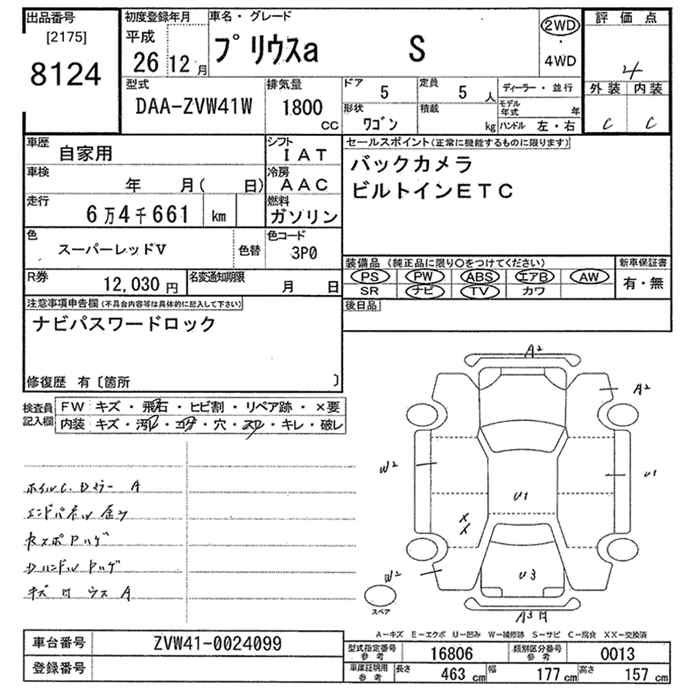 出品番号
[2175]
8124
初度登録年月
平成
26 12 月
車名・グレード
プリウスa S
2WD
・
4WD
評価点
4
外装 内装
C C
型式
DAA-ZVW41W
排気量
1800
CC
ドア
5
定員
5 人
形状
ワゴン
積載
kg
ディーラー・並行
モデル年式 年
ハンドル 左・右
車歴
自家用
シフト
IAT
車検
年 月( 日)
冷房
AAC
走行
6万4千661 km
燃料
ガソリン
色
スーパーレッドV
色替
色コード
3P0
R券
12,030 円
名変通知期限
月 日
セールスポイント(正常に機能するものに限ります)
バックカメラ
ビルトインETC
装備品(純正品に限り○をつけてください)
PS PW ABS エアB AW
SR ナビ TV カワ
新車保証書
有・無
後日品
注意事項申告欄(不具合内容等は具体的に記入して下さい)
ナビパスワードロック
修復歴 有〔箇所 〕
検査員記入欄
FW キズ・飛石・ヒビ割・リペア跡・×要
内装 キズ・汚レ・コゲ・穴・スレ・キレ・破レ
A2
A2
W2
U1
U1
XX
W2
U3
スペア
A-キズ E-エクボ U-凹み W-補修跡 S-サビ C-腐食 XX-交換済
車台番号 ZVW41-0024099
登録番号
型式指定番号参考 16806 類別区分番号参考 0013
車庫証明用参考 長さ 463 cm 幅 177 cm 高さ 157 cm